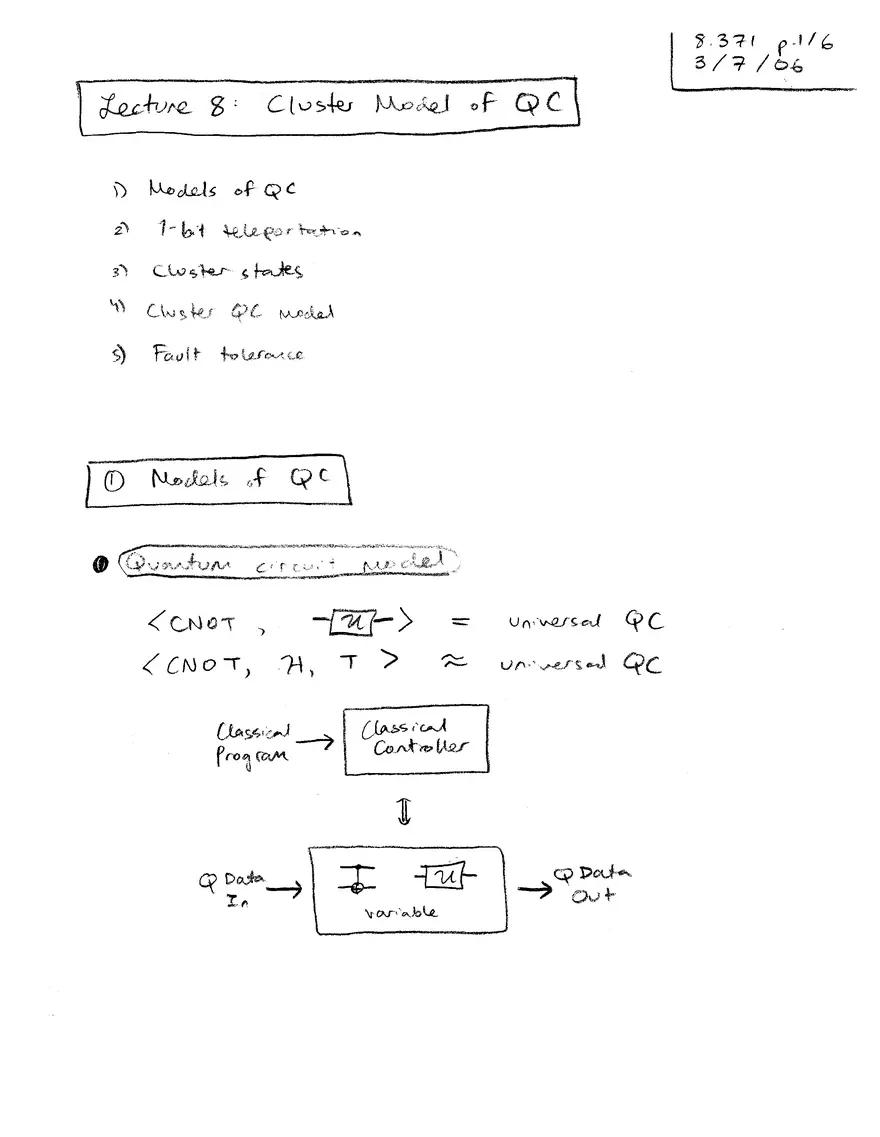 8.371 p.1/6
3/7/06
Lecture 8: Cluster Model of QC
1) Models of QC
2) 1-bit teleportation
3) Cluster states
4) Cluster QC model
5) Fault tolerance
① Models of QC
Quantum circuit model
<CNOT, U> = universal QC
<CNOT, H, T> ≈ universal QC
Classical Program → Classical Controller
⇕
Q Data In → U variable → Q Data Out